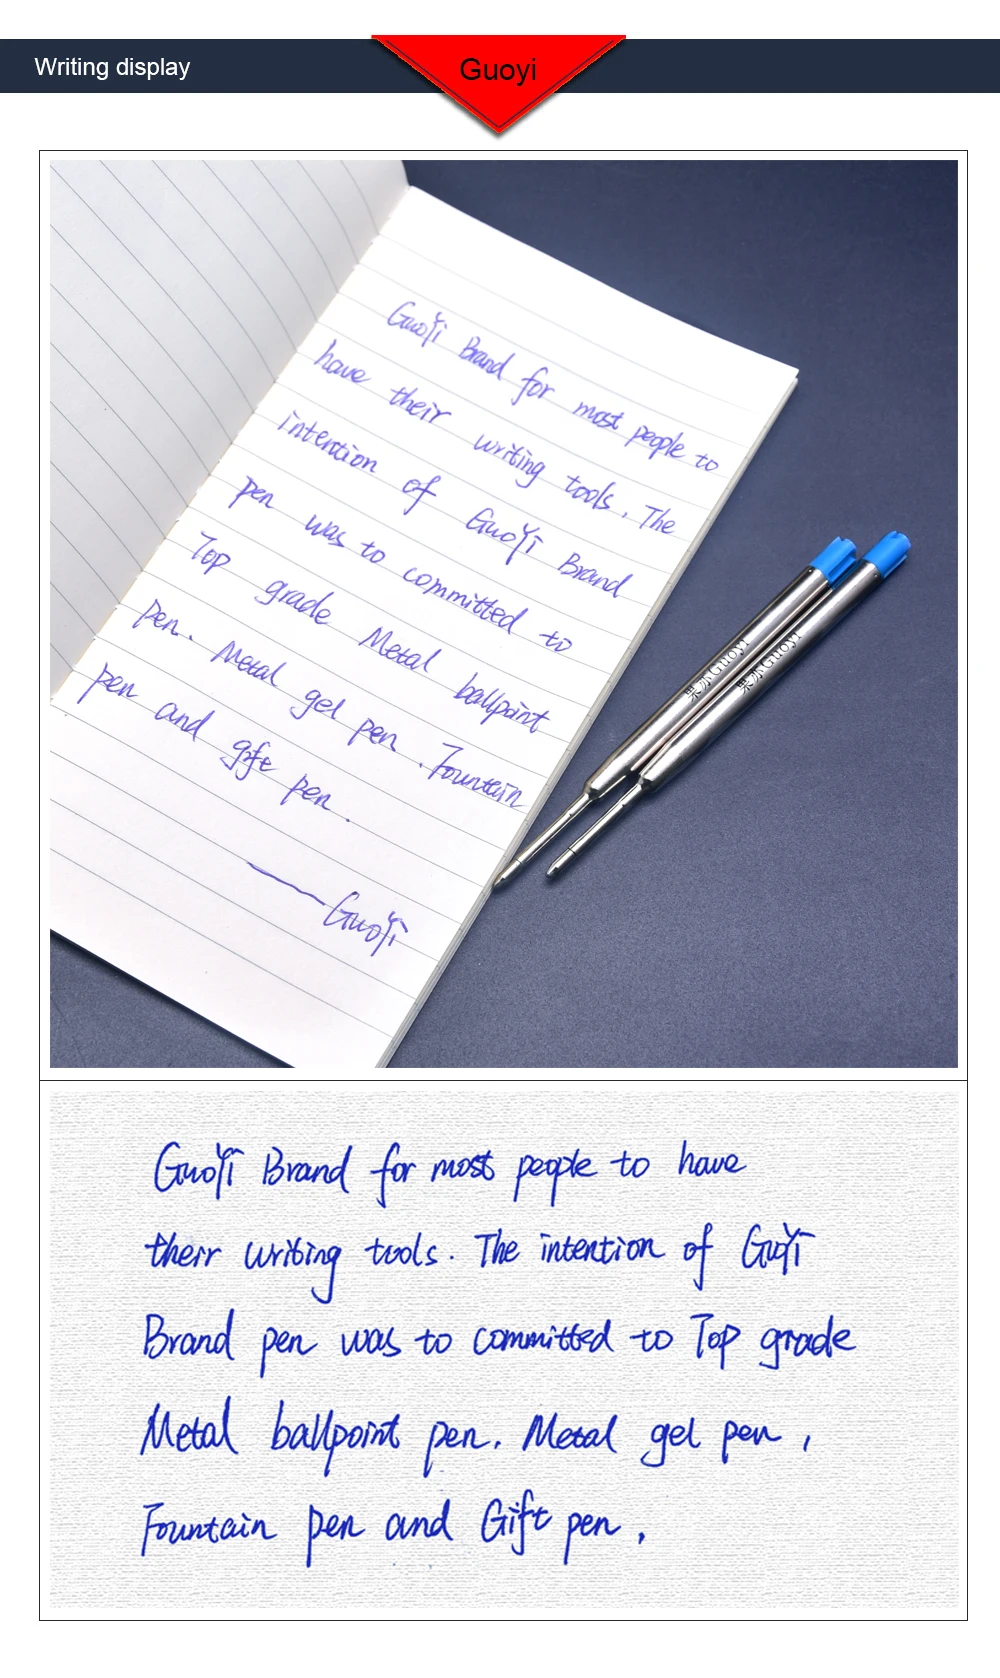 Writing display
Guoyi
GuoYi Brand for most people to
have their writing tools. The
intention of GuoYi Brand
pen was to committed to
Top grade Metal ballpoint
pen. Metal gel pen. Fountain
pen and gift pen.
—GuoYi
果亦Guoyi
果亦Guoyi
GuoYi Brand for most people to have
their writing tools. The intention of GuoYi
Brand pen was to committed to Top grade
Metal ballpoint pen. Metal gel pen,
Fountain pen and Gift pen,